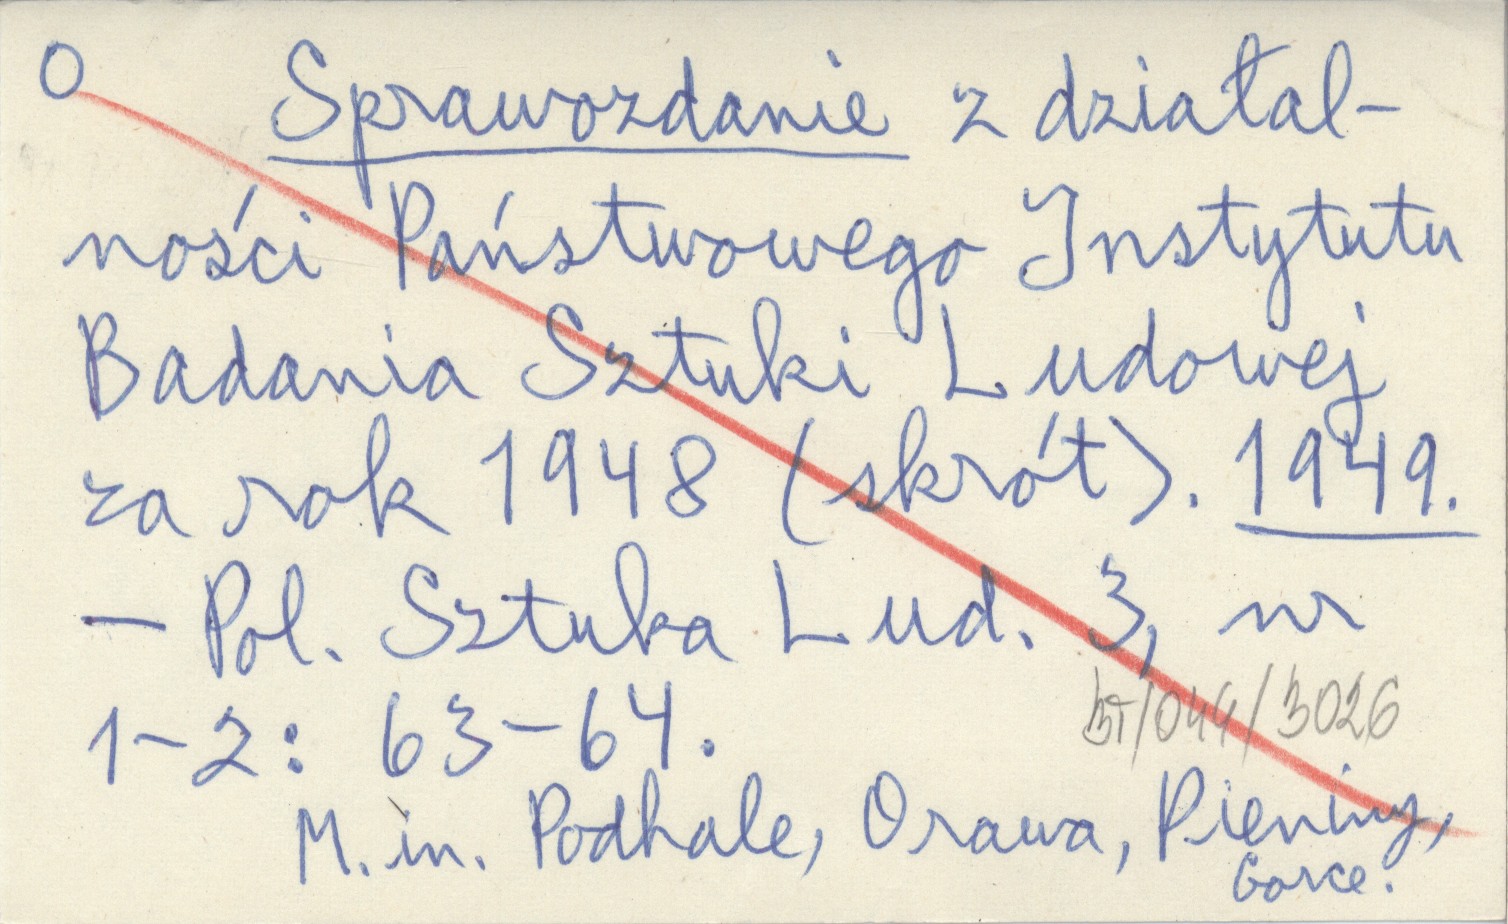 O Sprawozdanie z działal-
ności Państwowego Instytutu
Badania Sztuki Ludowej
za rok 1948 (skrót). 1949.
— Pol. Sztuka Lud. 3, nr
1-2: 63-64.
/044/3026
M. in. Podhale, Orawa, Pieniny,
Gorce.